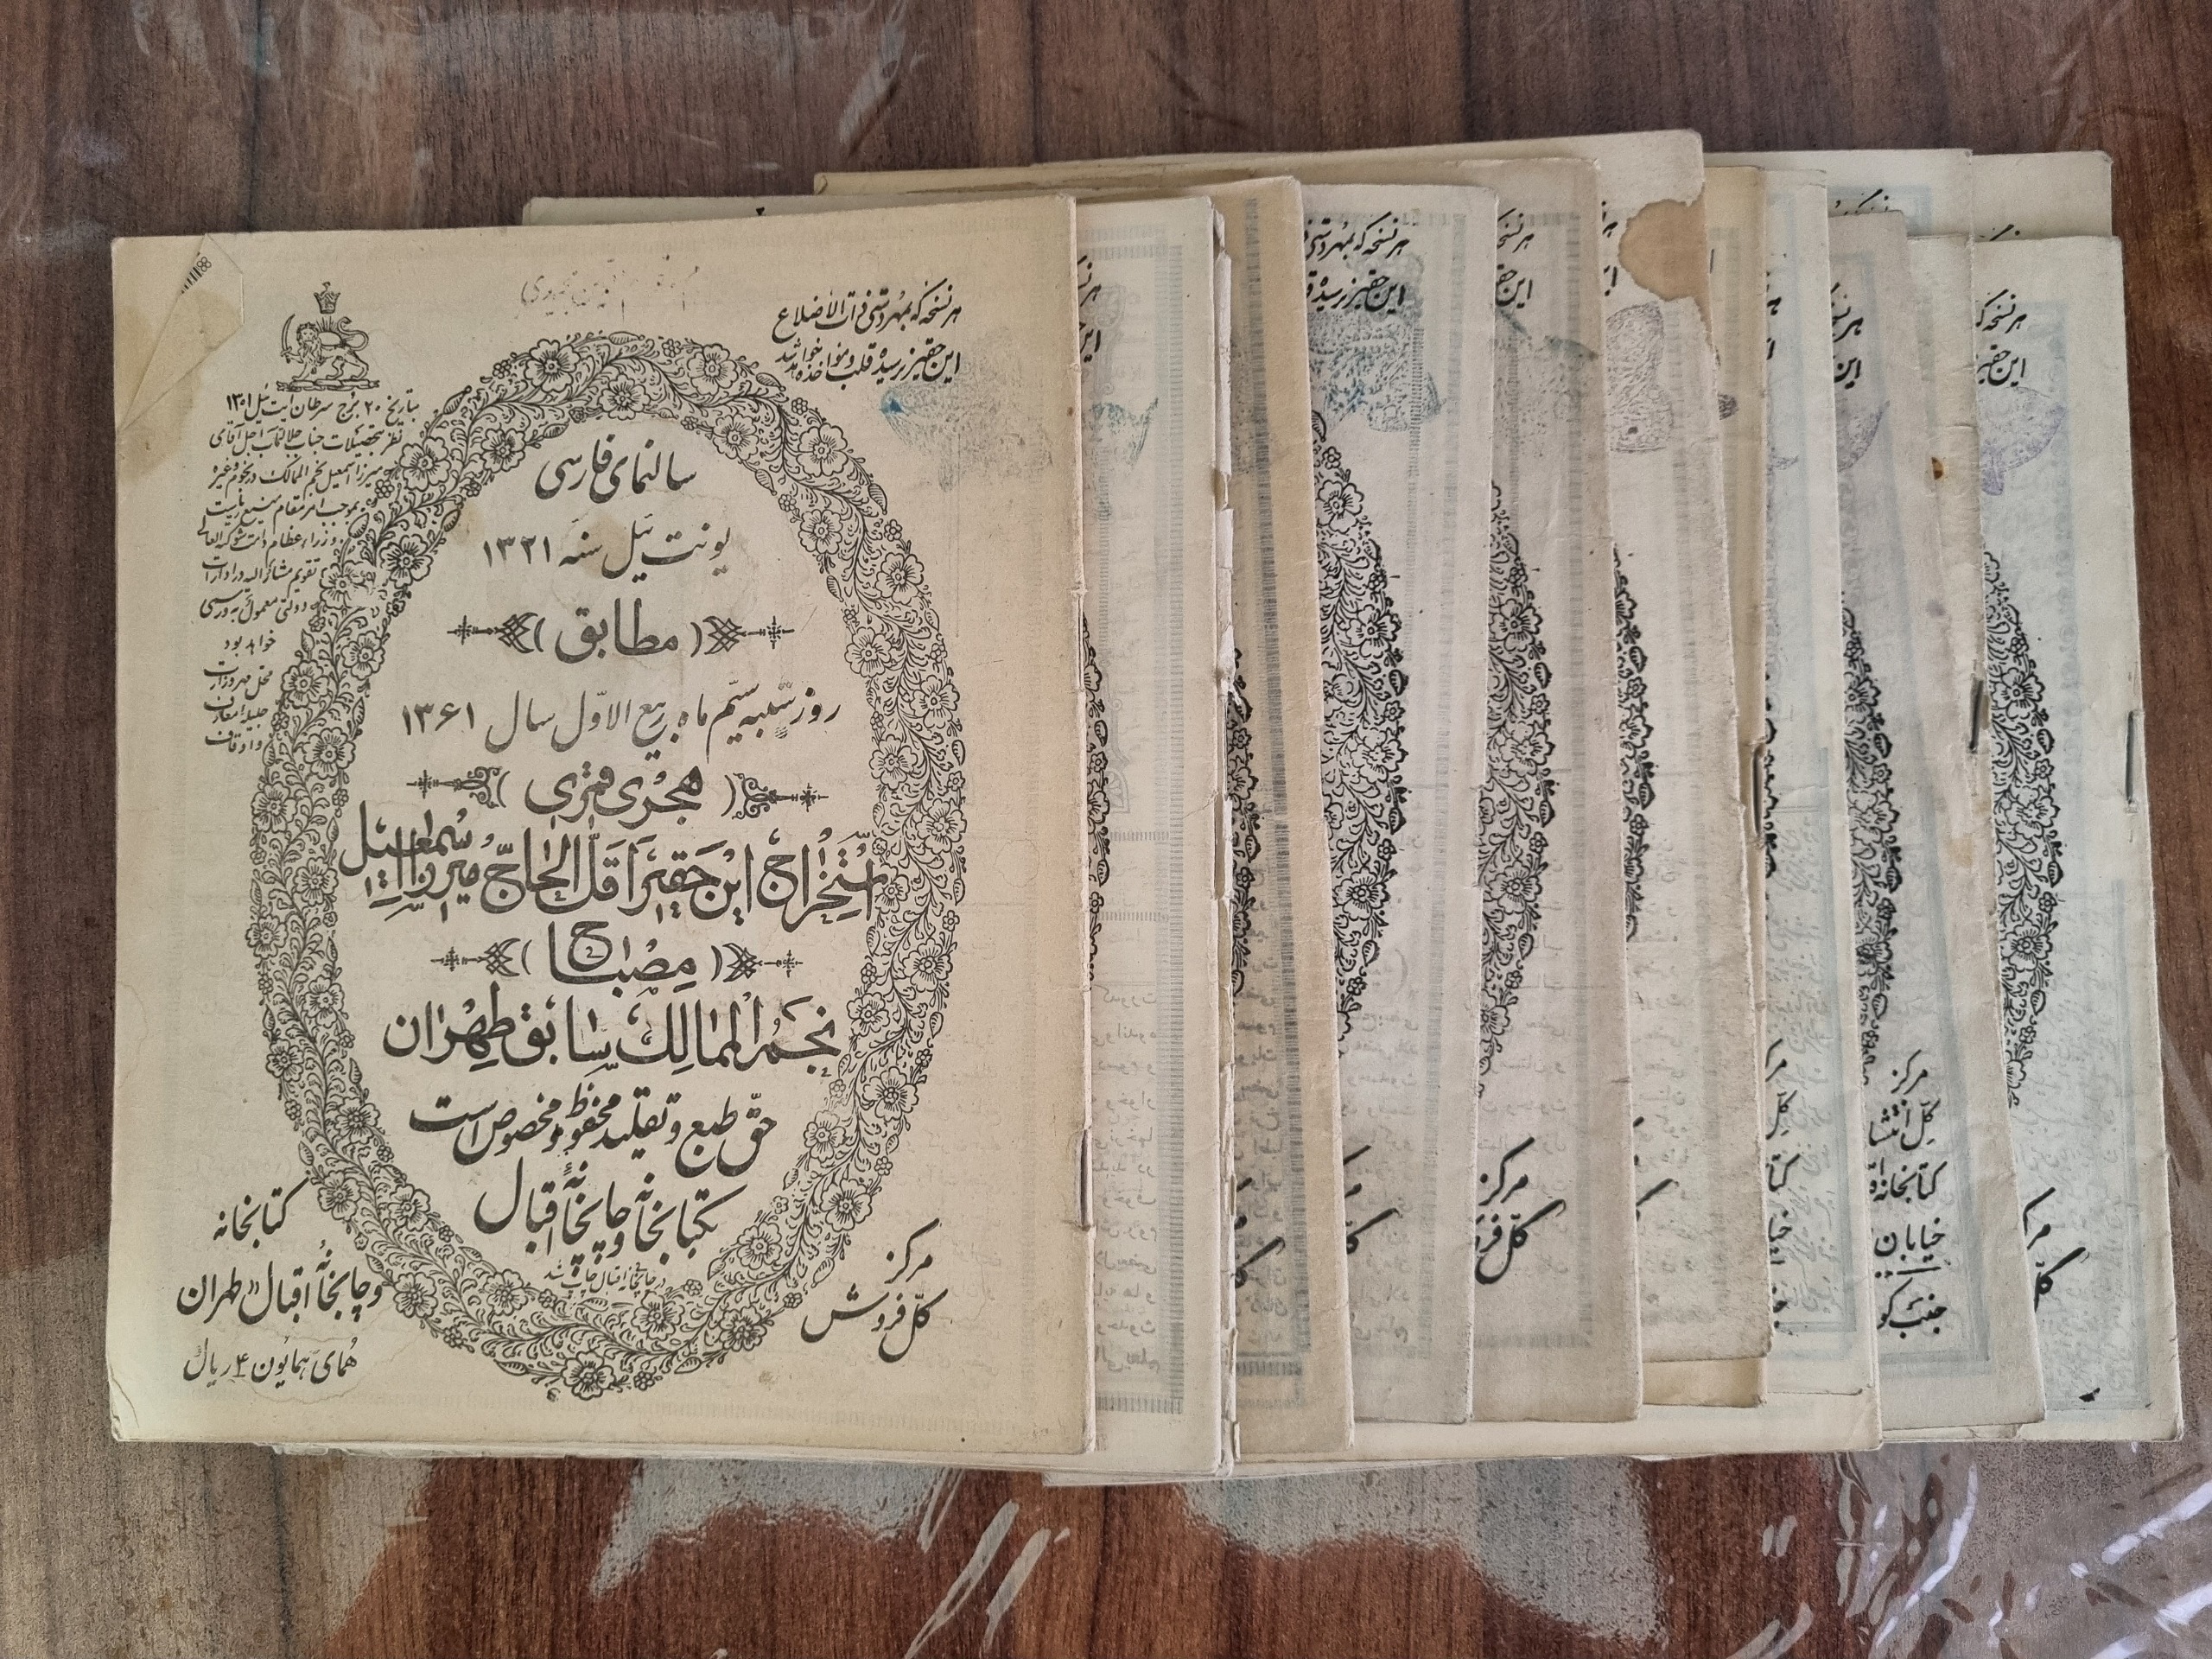 هر نسخه که بمهر و دستی ذات الاضلاع
این حقیر نرسیده قلب و مؤاخذه خواهد شد
بتاریخ ۲۰ برج سرطان ایت ئیل ۱۳۰۱
نظر بتحصیلات جناب جلالتمآب اجل آقای
میرزا اسمعیل نجم الممالک در نجوم و غیره
بموجب امر مقام منیع ریاست
وزراء عظام دامت شوکته العالی
تقویم مشار الیه در ادارات
دولتی معمول به و رسمی
خواهد بود
محل مهر وزارت
جلیله معارف
و اوقاف
سالنمای فارسی
یونت ئیل سنه ۱۳۲۱
(مطابق)
روز شنبه سیّم ماه ربیع الاوّل سال ۱۳۶۱
(هجری قمری)
استخراج این حقیر اقل الحاجّ میرزا اسمعیل
(مصباح)
نجم الممالک سابق طهران
حقّ طبع و تقلید محفوظ و مخصوص است
بکتابخانه و چاپخانه اقبال
در چاپخانه اقبال چاپ شد
مرکز
کلّ فروش
کتابخانه
و چاپخانه اقبال طهران
همای همایون ۴ ریال
هر نسخه که بمهر و دستی
این حقیر نرسیده
هر نسخه
این حقیر
مرکز
کلّ فر
هر
این
مرکز
کلّ انتشا
کتابخانه
خیابان
جنب کو
هر نسخه که
این حقیر